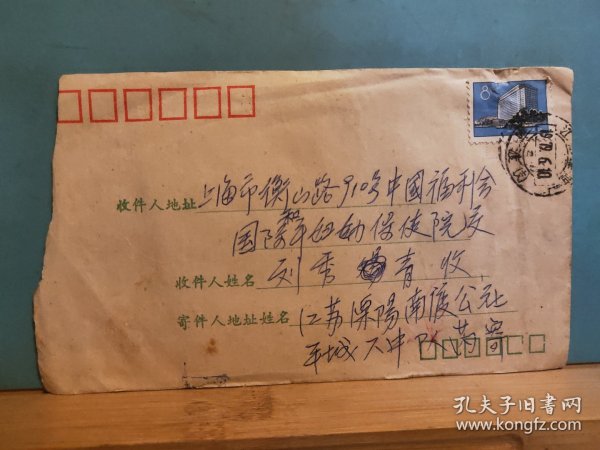 8
收件人地址 上海市衡山路910号中國福利会
国际和平妇幼保健院交
收件人姓名 刘秀青 收
寄件人地址姓名 江苏溧陽南渡公社
平城大中队 寄
孔夫子旧书网
www.kongfz.com